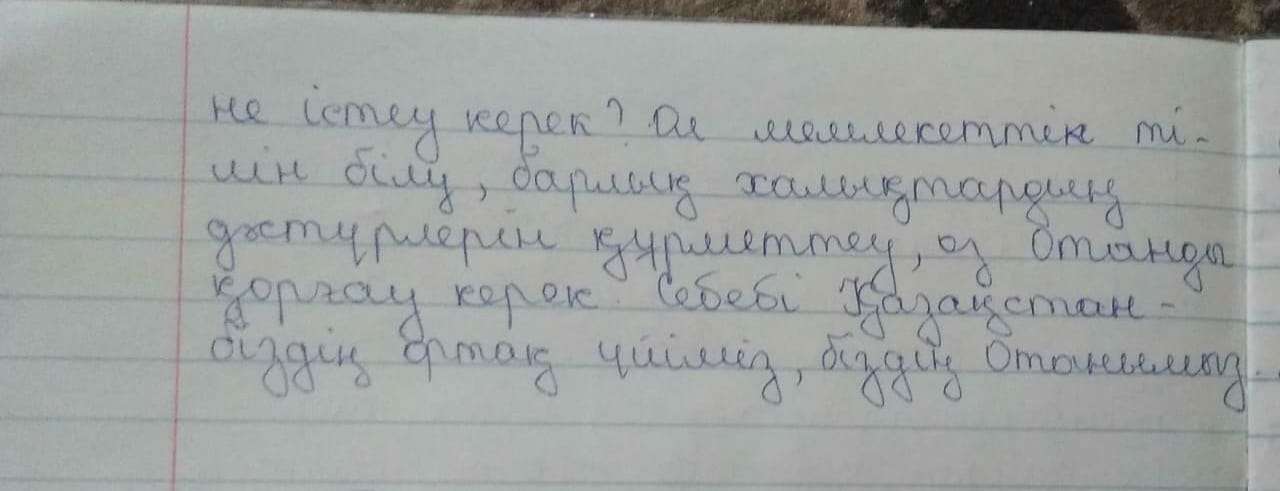 не істеу керек? Ол мемлекеттік ті-
лін білу, барлық халықтардың
дәстүрлерін құрметтеу, өз Отанды
қорғау керек. Себебі Қазақстан -
біздің ортақ үйіміз, біздің Отанымыз.